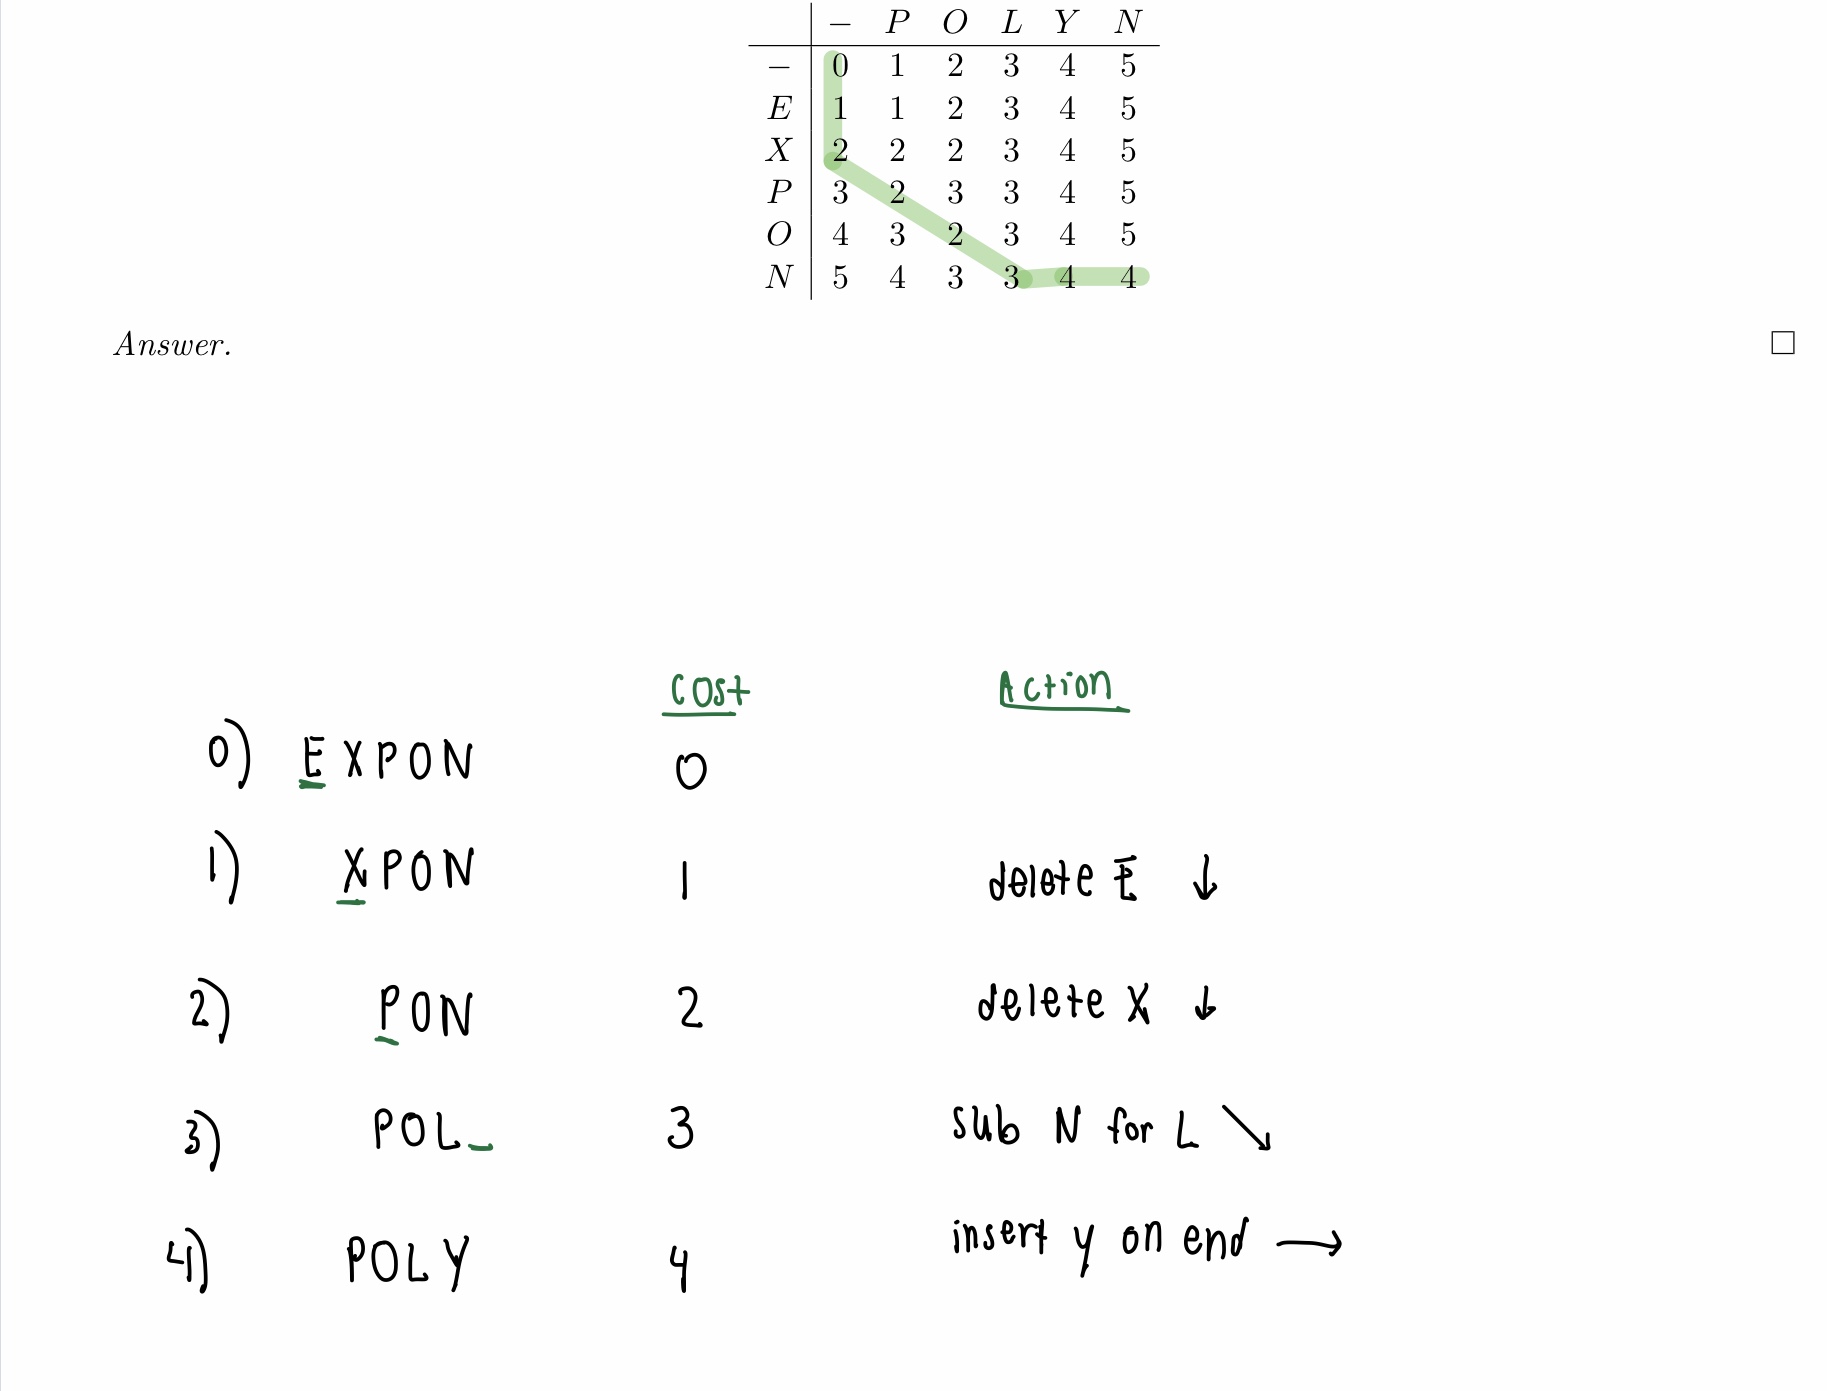 − P O L Y N
− 0 1 2 3 4 5
E 1 1 2 3 4 5
X 2 2 2 3 4 5
P 3 2 3 3 4 5
O 4 3 2 3 4 5
N 5 4 3 3 4 4
Answer. □
Cost Action
0) EXPON 0
1) XPON 1 delete E ↓
2) PON 2 delete X ↓
3) POL_ 3 sub N for L ↘
4) POLY 4 insert y on end →